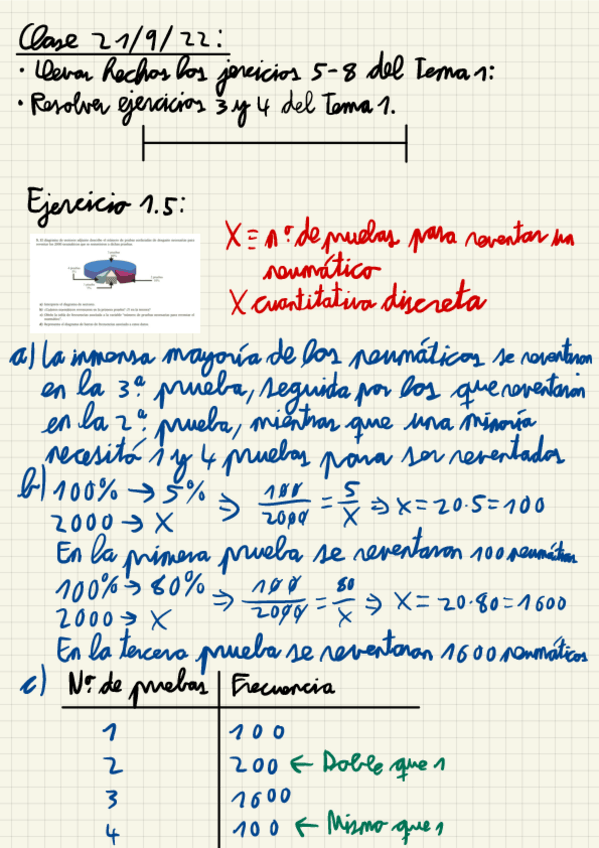 Clase 21/9/22:
· Llevar hechos los jercicios 5-8 del Tema 1:
· Resolver ejercicios 3 y 4 del Tema 1.
Ejercicio 1.5:
X ≡ nº de pruebas para reventar un
neumático
X cuantitativa discreta
a) La inmensa mayoría de los neumáticos se reventaron
en la 3ª prueba, seguida por los que reventaron
en la 2ª prueba, mientras que una minoría
necesitó 1 y 4 pruebas para ser reventados
b) 100% → 5% ⇒ 100/2000 = 5/X ⇒ X = 20·5 = 100
2000 → X
En la primera prueba se reventaron 100 neumáticos
100% → 80% ⇒ 100/2000 = 80/X ⇒ X = 20·80 = 1600
2000 → X
En la tercera prueba se reventaron 1600 neumáticos
c) Nº de pruebas Frecuencia
1 100
2 200 ← Doble que 1
3 1600
4 100 ← Mismo que 1